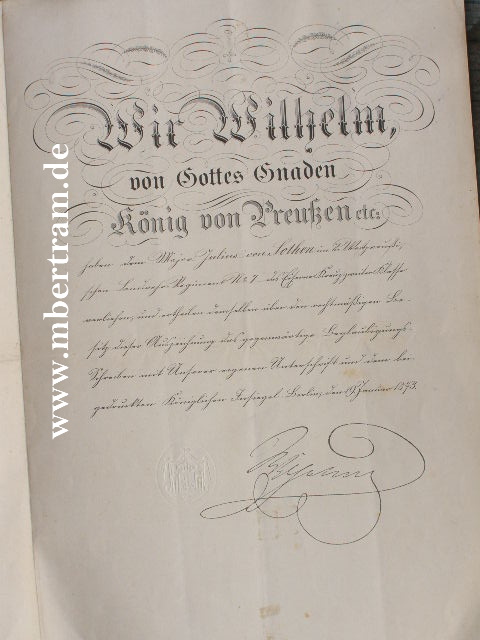 Wir Wilhelm,
von Gottes Gnaden
König von Preußen etc.
haben dem Major Julius von Sothen im 2. Westpreußi-
schen Landwehr-Regiment No 7 das Eiserne Kreuz zweiter Klasse
verliehen, und ertheilen demselben über den rechtmäßigen Be-
sitz dieser Auszeichnung das gegenwärtige Beglaubigungs-
Schreiben mit Unserer eigenen Unterschrift und dem bei-
gedruckten Königlichen Insiegel. Berlin, den 19. Januar 1873.
www.mbertram.de